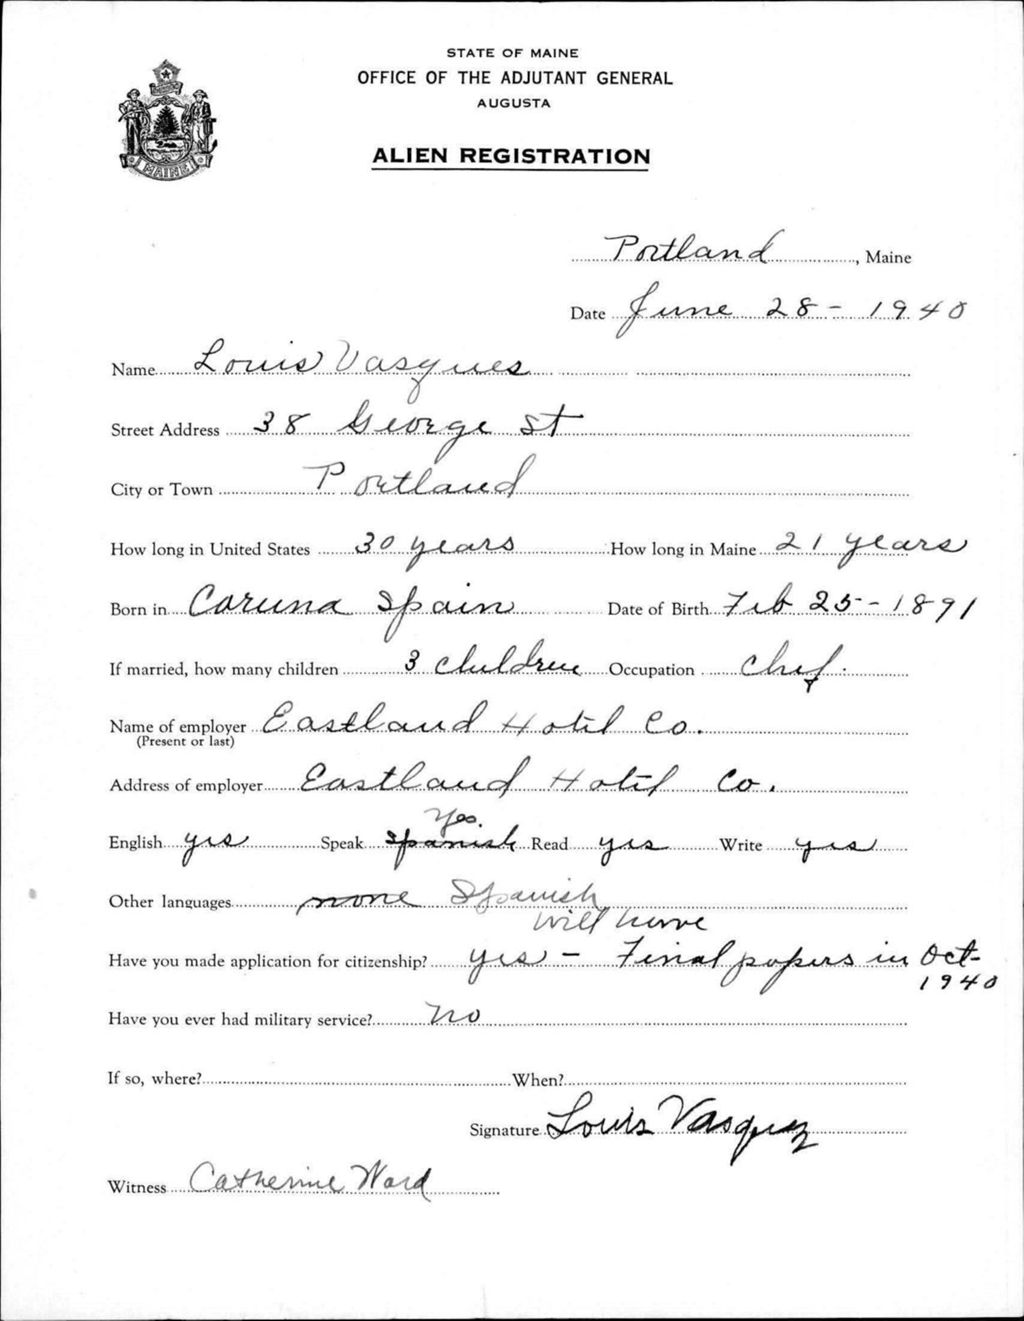 STATE OF MAINE
OFFICE OF THE ADJUTANT GENERAL
AUGUSTA
ALIEN REGISTRATION
MAINE
Portland, Maine
Date June 28 - 1940
Name Louis Vasques
Street Address 38 George St
City or Town Portland
How long in United States 30 years How long in Maine 21 years
Born in Caruna Spain Date of Birth Feb 25 - 1891
If married, how many children 3 children Occupation Chef.
Name of employer Eastland Hotel Co.
(Present or last)
Address of employer Eastland Hotel Co.
Yes.
English yes Speak Spanish Read yes Write yes
Other languages none Spanish
will have
Have you made application for citizenship? yes - Final papers in Oct-
1940
Have you ever had military service? No
If so, where? When?
Signature Louis Vasquez
Witness Catherine Ward